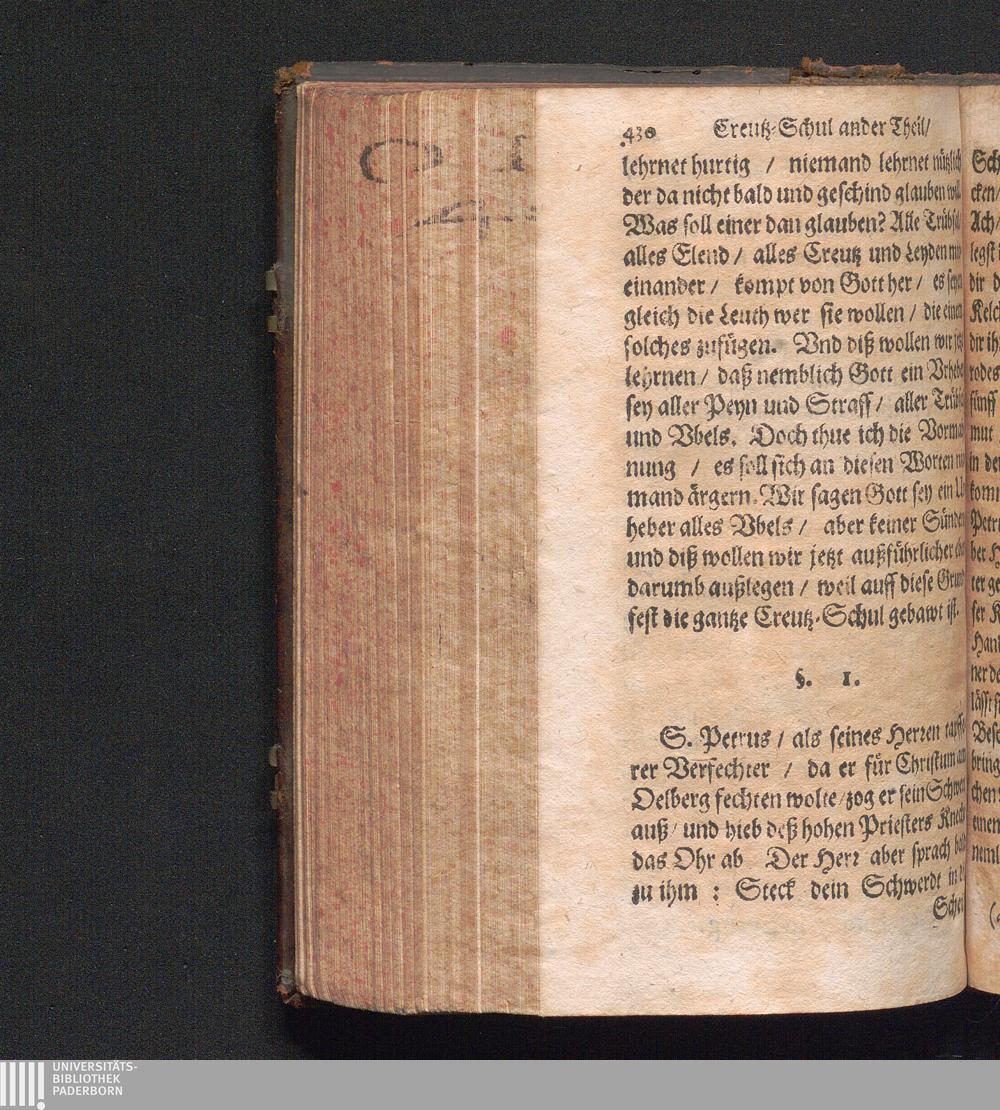 430 Creutz-Schul ander Theil/
lehrnet hurtig / niemand lehrnet nützlich
der da nicht bald und geschind glauben will
Was soll einer dan glauben? Alle Trübsal
alles Elend / alles Creutz und Leyden
einander / kompt von Gott her / es seyen
gleich die Leuth wer sie wollen / die einem
solches zufügen. Vnd diß wollen wir jetzt
lehrnen / daß nemblich Gott ein Vrheber
sey aller Peyn und Straff / aller Trübsal
und Vbels. Doch thue ich die Vormah
nung / es soll sich an diesen Worten
mand ärgern. Wir sagen Gott sey ein
heber alles Vbels / aber keiner Sünden
und diß wollen wir jetzt außführlicher
darumb außlegen / weil auff diese Grund
fest die gantze Creutz-Schul gebawt ist.
§. 1.
S. Petrus / als seines Herren
rer Verfechter / da er für Christum am
Oelberg fechten wolte / zog er sein Schwerd
auß / und hieb deß hohen Priesters Knecht
das Ohr ab Der Herr aber sprach bald
zu ihm : Steck dein Schwerdt in
Schei
Sch
cken/
Ach/
legst
dir d
Kelc
dir ih
todes
fünff
mut
in de
kom
Petr
ber H
ter ge
ser K
Han
ner de
lässt
Besc
bring
chen
einen
neml
UNIVERSITÄTS-
BIBLIOTHEK
PADERBORN